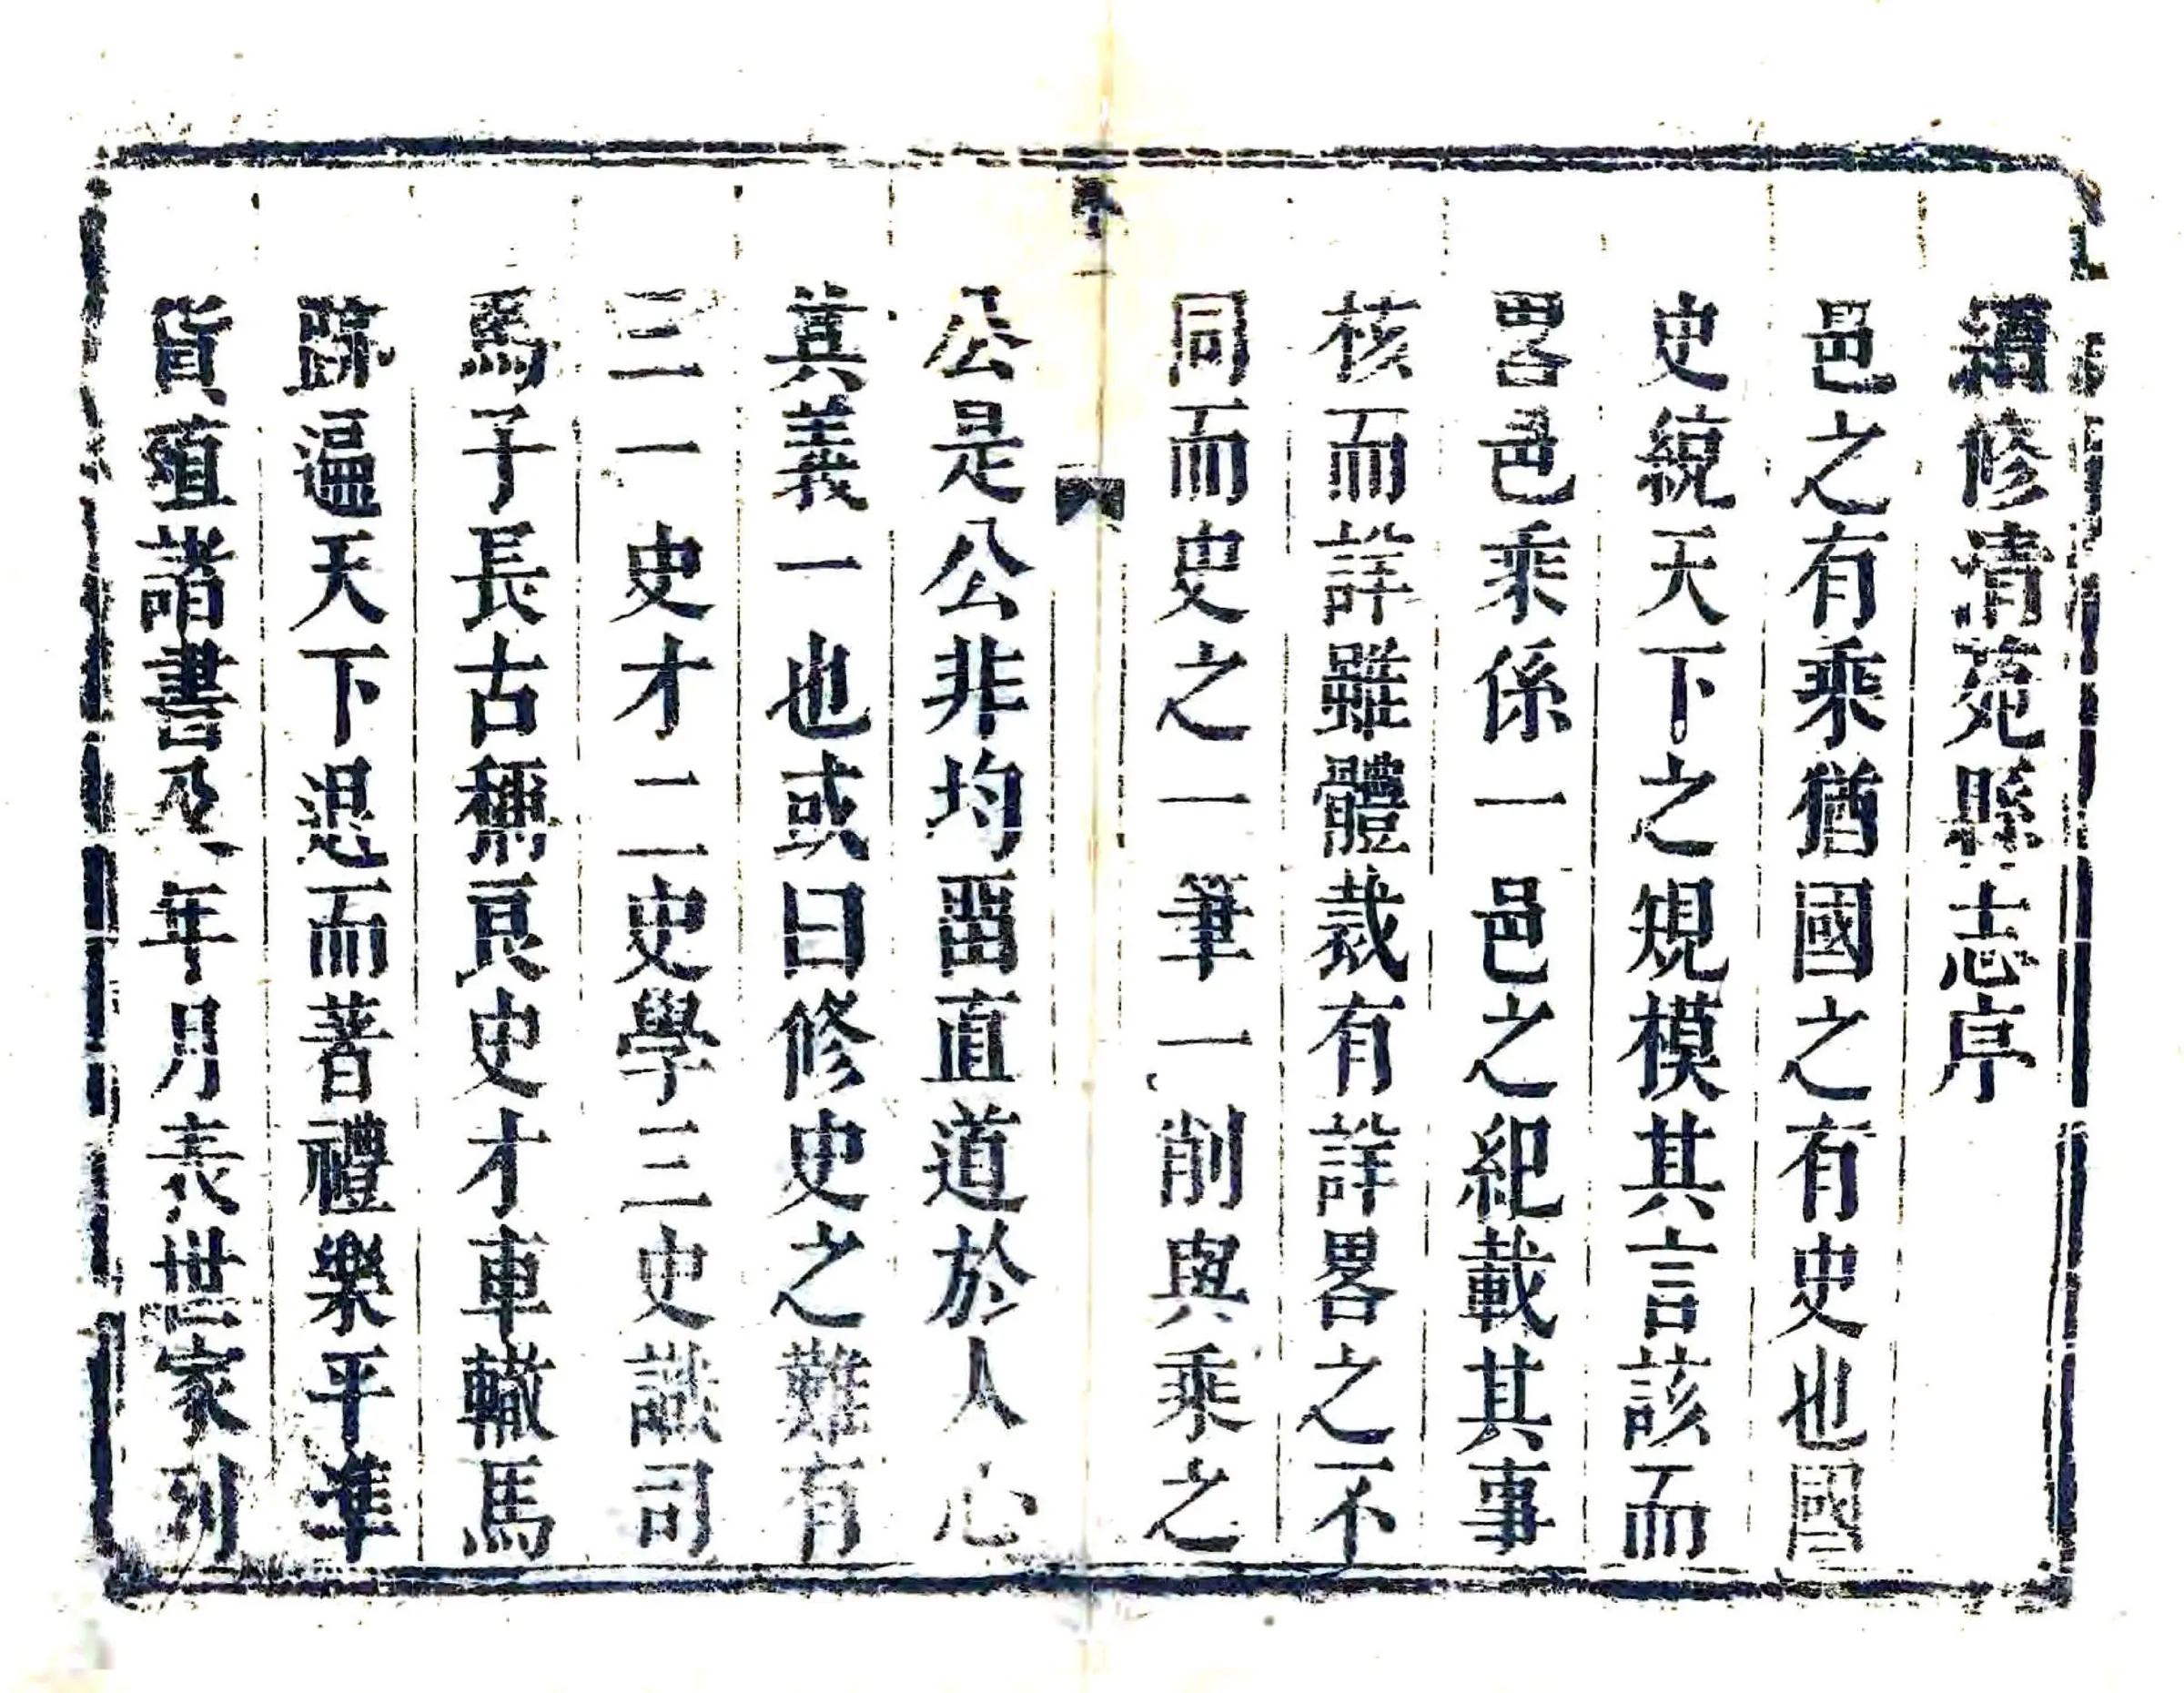 續修清苑縣志序
邑之有乘猶國之有史也國
史統天下之規模其言該而
畧邑乘係一邑之紀載其事
核而詳雖體裁有詳畧之不
同而史之一筆一削與乘之
序
一
公是公非均畱直道於人心
其義一也或曰修史之難有
三一史才二史學三史識司
馬子長古稱良史才車轍馬
跡遍天下退而著禮樂平準
貨殖諸書及年月表世家列